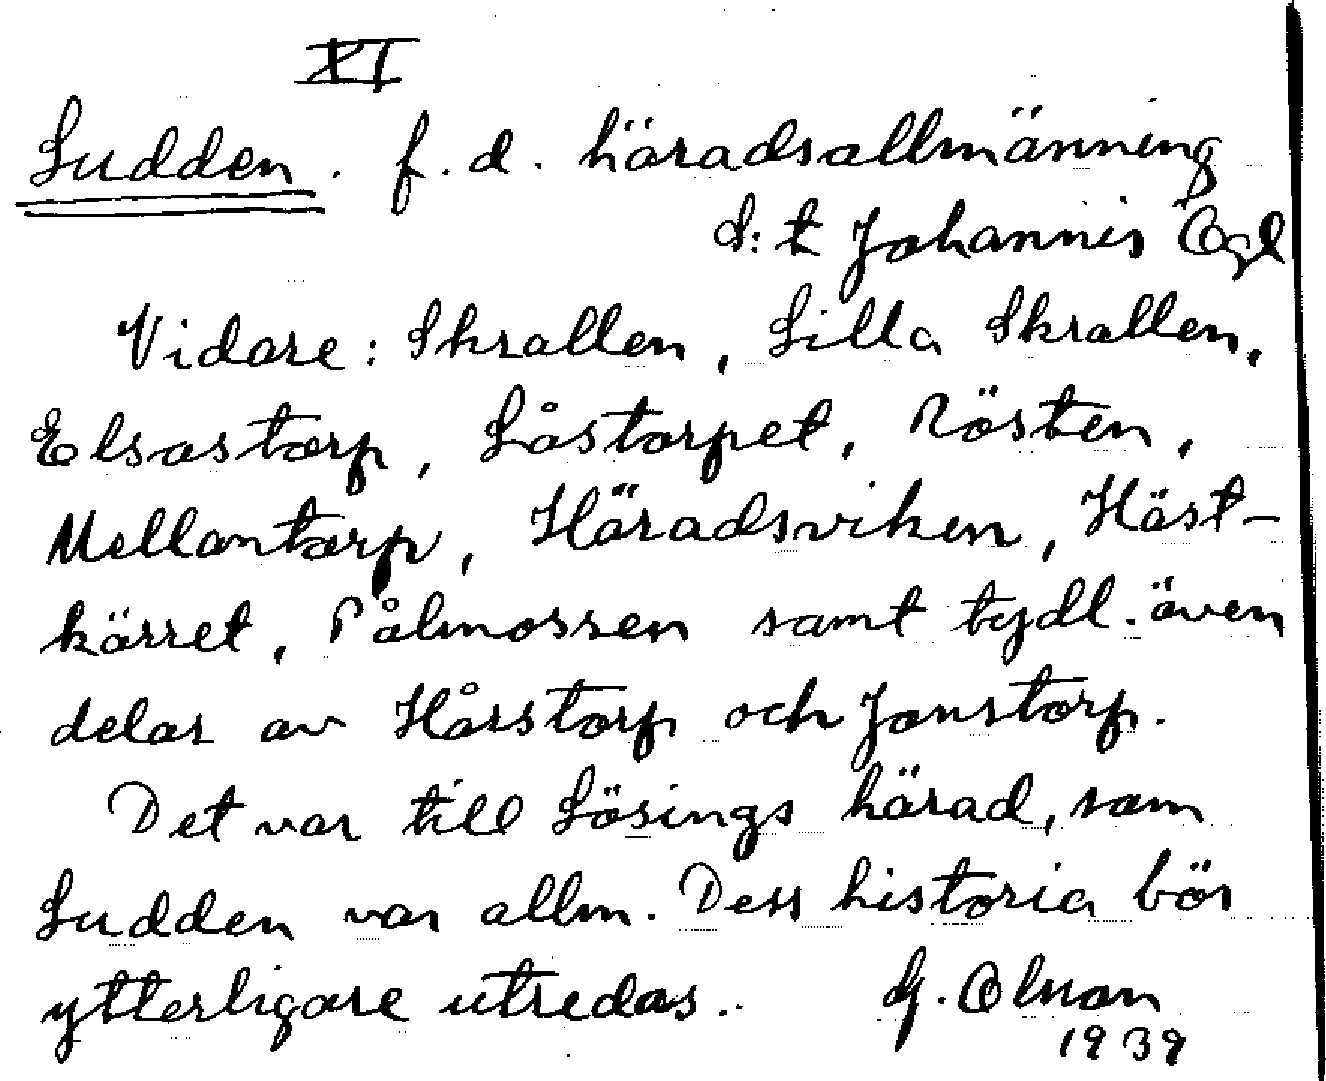 XI
Ludden. f. d. häradsallmänning
S:t Johannis Ögl
Vidare: Skrallen, Lilla Skrallen,
Elsastorp, Låstorpet, Rösten,
Mellantorp, Häradsviken, Häst-
kärret, Pålmossen samt tydl. även
delar av Hårstorp och Jonstorp.
Det var till Lösings härad, som
Ludden var allm. Dess historia bör
ytterligare utredas. G. Olson
1939